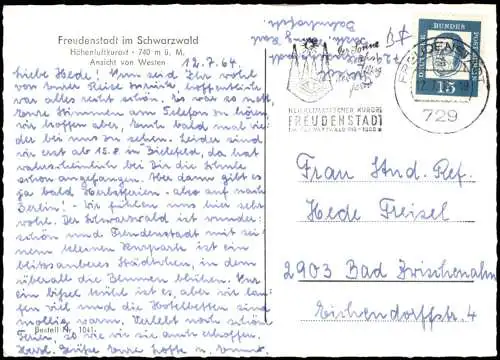 Freudenstadt im Schwarzwald
Höhenluftkurort · 740 m ü. M.
Ansicht von Westen
12.7.64
Liebe Hede! Nun seid Ihr wohl
von Eurer Reise zurück, hoffentlich
war alles recht schön. Es war so nett,
Eure Stimmen am Telefon zu hören,
wir hoffen aber, Euch bald mal wie-
der bei uns zu sehen. Leider sind
wir erst ab 15.8 in Bielefeld, da hat
wahrscheinlich bei Dir die Schule
schon angefangen. Aber dann gibt es
ja bald Herbstferien - also auf nach
Berlin! - Wir fühlen uns hier sehr
wohl. Der Schwarzwald ist wunder-
schön und Freudenstadt mit sei-
nem kleinen Kurpark ist ein
blitzsauberes Städtchen, in dem
überall die Blumen blühen. Nur
ein bißel kühl ist es, aber wir lau-
fen viel und die Hotelbetten sind
mollig warm. Verlebt noch schöne
Ferien, so wie wir sie auch erhoffen.
Herzl. Grüße Eure
Bestell Nr. 1041
HEILKLIMATISCHER KURORT
FREUDENSTADT
IM SCHWARZWALD
FREUDENSTADT
729
DEUTSCHE BUNDESPOST
15
Frau Stud. Ref.
Hede Freisel
2903 Bad Zwischenahn
Eichendorffstr. 4